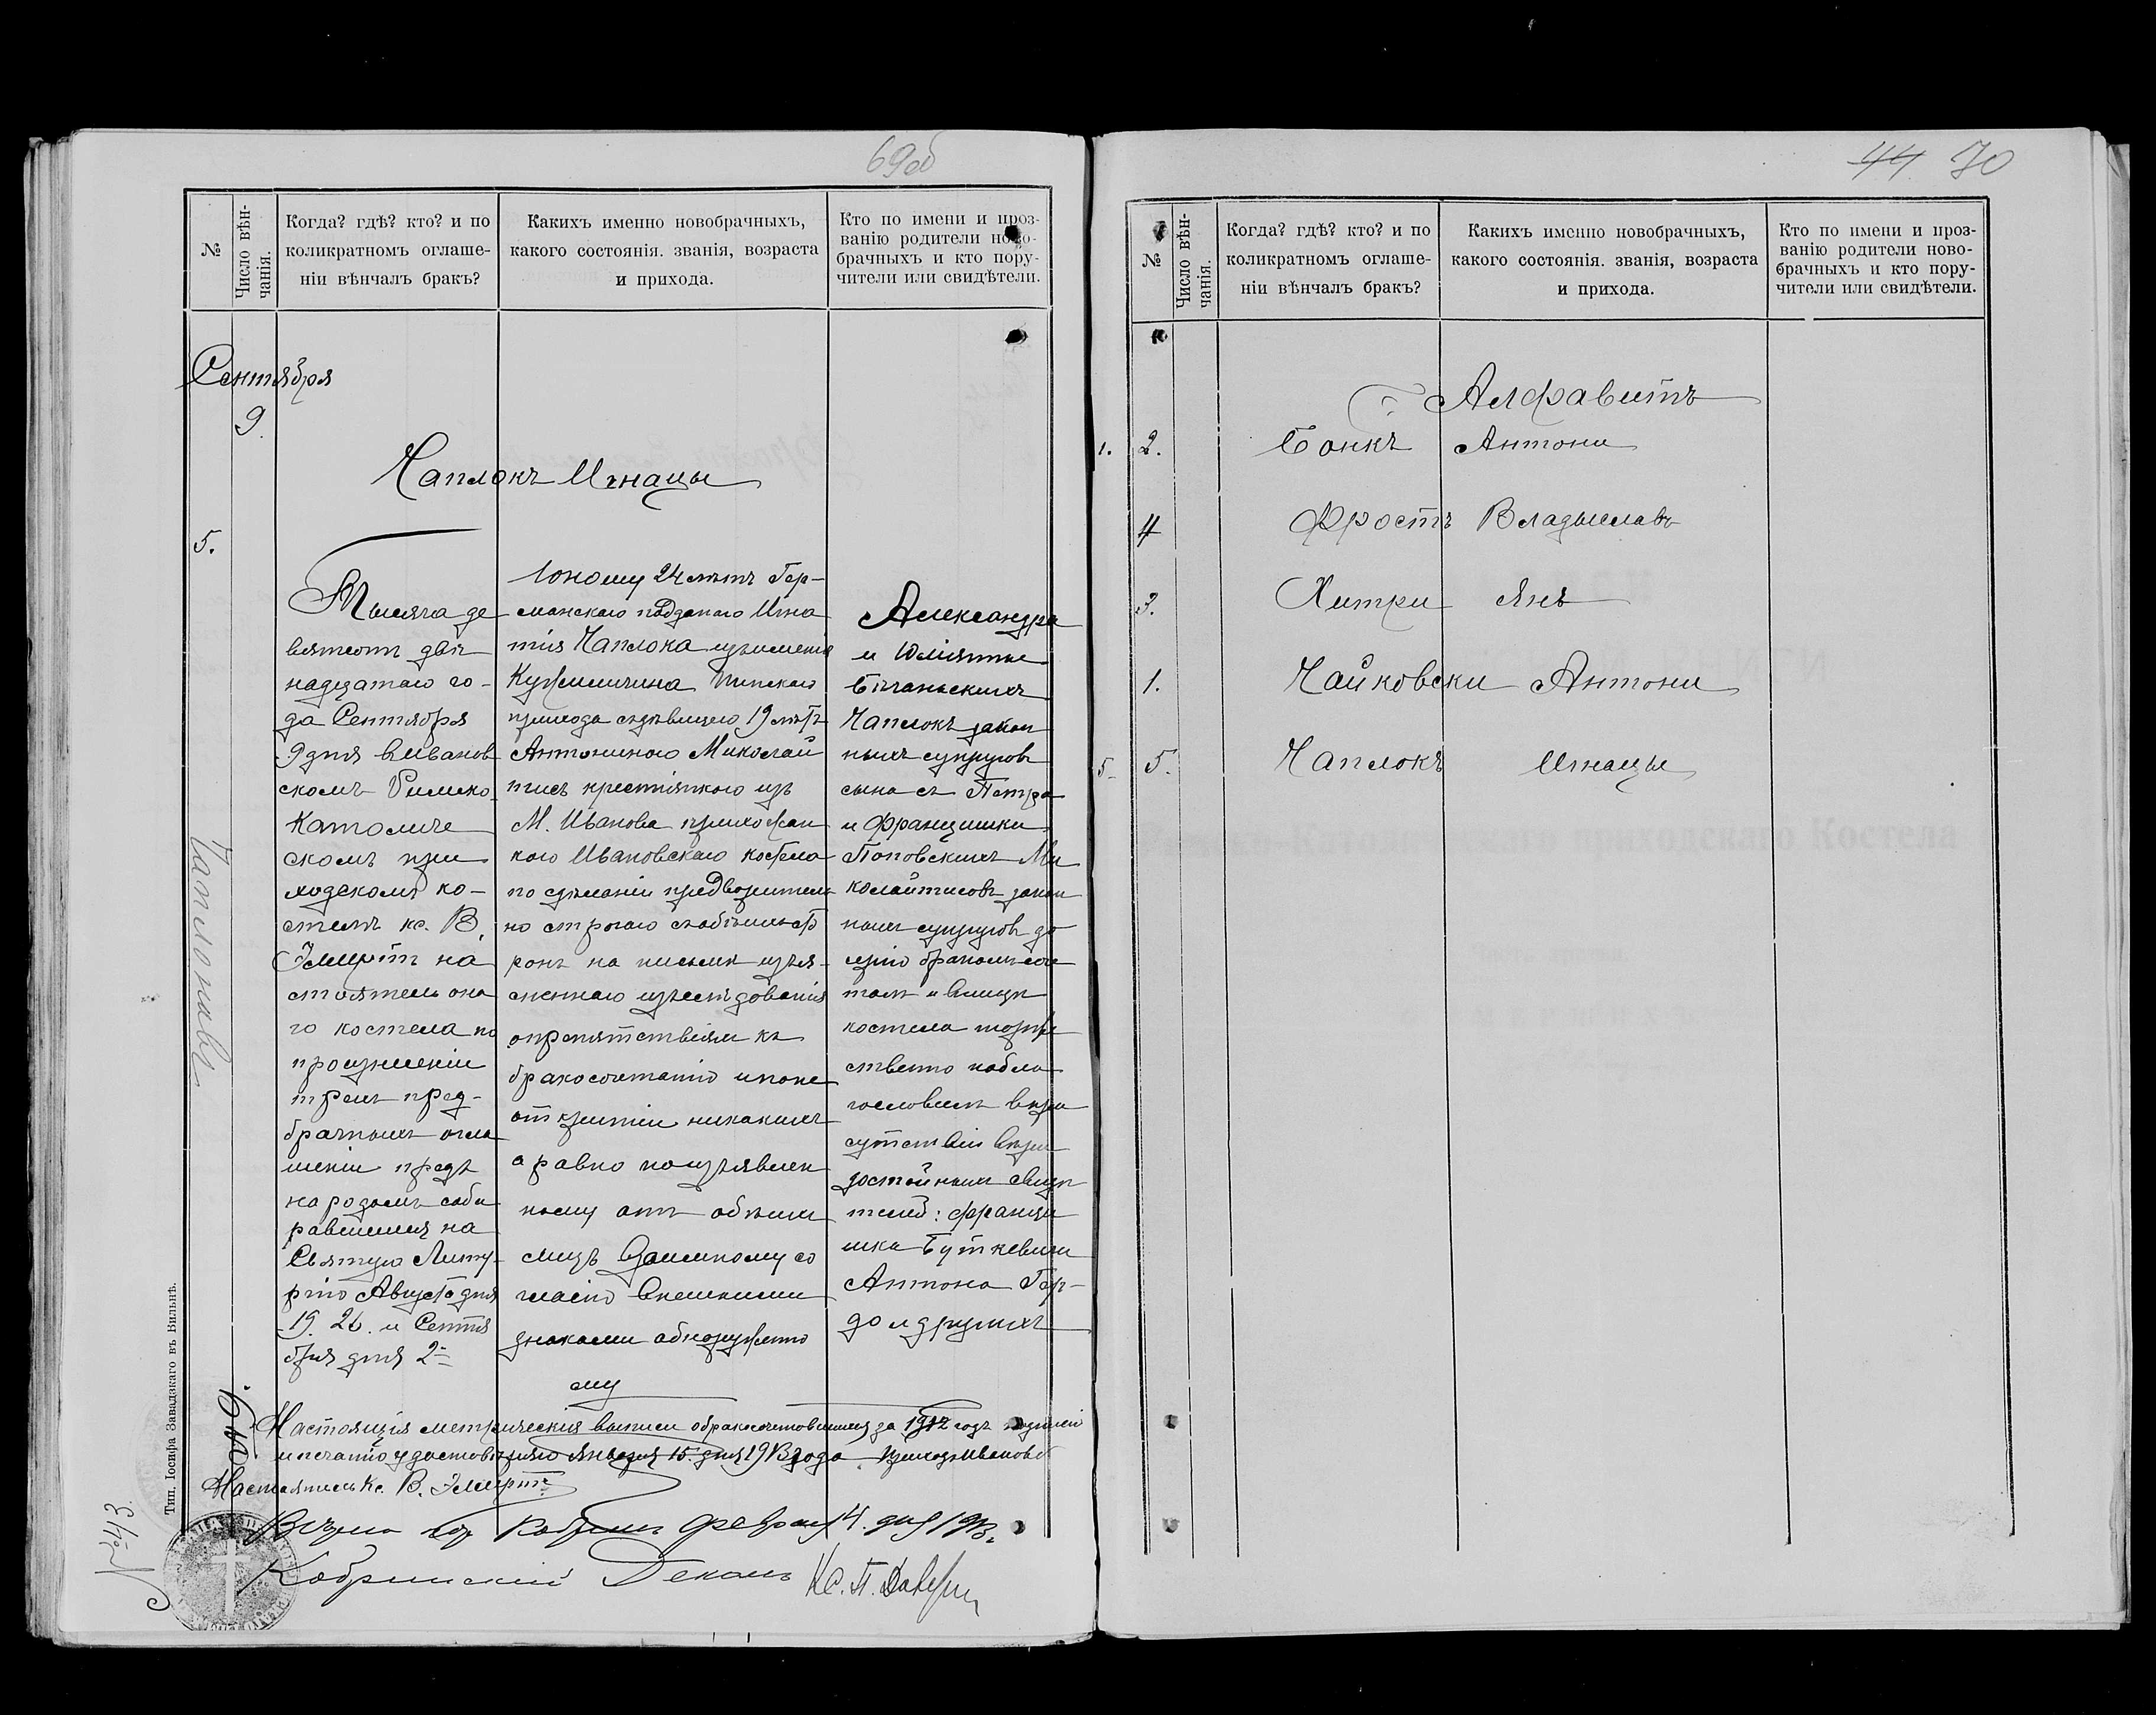 69об
№
Число вѣн-
чанія.
Когда? гдѣ? кто? и по
коликратномъ оглаше-
ніи вѣнчалъ бракъ?
Какихъ именно новобрачныхъ,
какого состоянія. званія, возраста
и прихода.
Кто по имени и проз-
ванію родители ново-
брачныхъ и кто пору-
чители или свидѣтели.
Сентября
9.
Чаплокъ Игнацы
5.
Тысяча де
вятсотъ двѣ
надцатаго го-
да Сентября
9 дня в Иванов
скомъ Римско
Католиче
скомъ при
ходскомъ ко-
стелѣ кс. В.
настоятель она
го костела по
произнесеніи
трехъ пред-
брачныхъ огла
шеніи предъ
народомъ соби
равшимся на
Святую Литу-
ргію Августа дня
19. 26. и Сентя
бря дня 2-
Юному 24 лѣтъ Гер-
манскаго подданаго Игна
тія Чаплока изъ имѣнія
Пинскаго
прихода съ дѣвицею 19 лѣтъ
Антониною Миколай
тисъ крестьянкою изъ
М. Иванова прихожан
кою Ивановскаго костела
по сдѣланіи предварительн
но строгаго с обѣихъ ст
ронъ на письмѣ изъя-
сненнаго изслѣдованія
о препятствіяхъ къ
бракосочетанію и по не
открытіи никакихъ
а равно по изъявлен
ному отъ обѣихъ
лицъ взаимному со
гласію внешними
знаками обнаруженно
му
Александра
и Юліянны
Чаплокъ закон
ныхъ супруговъ
сына съ Петра
и Францишки
Поповскихъ Ми
колайтисовъ закон
ныхъ супруговъ до
черью бракомъ соче
талъ и влицѣ
костела торже
ственно побла
гословилъ в при
сутствіи вѣри
достойныхъ свидѣ
телей: Франци
шка Буткевича
Антона Гер-
до и другихъ
Чаплокъ
Настоящія метрическія выписи о бракосочетавшихся за 1912 годъ подписью
и печатію удостовѣряю Января 15. дня 1913 года
Настоятель Кс. В.
Февраля 4. дня 1913.
Кобринскій Деканъ Кс. П.
Тип. Іосифа Завадзкаго въ Вильнѣ.
44 70
№
Число вѣн-
чанія.
Когда? гдѣ? кто? и по
коликратномъ оглаше-
ніи вѣнчалъ бракъ?
Какихъ именно новобрачныхъ,
какого состоянія. званія, возраста
и прихода.
Кто по имени и проз-
ванію родители ново-
брачныхъ и кто пору-
чители или свидѣтели.
Алфавитъ
1. 2. Бонкъ Антони
4 Фростъ Владыславъ
3. Хитри Янъ
1. Чайковски Антони
5- 5. Чаплокъ Игнацы